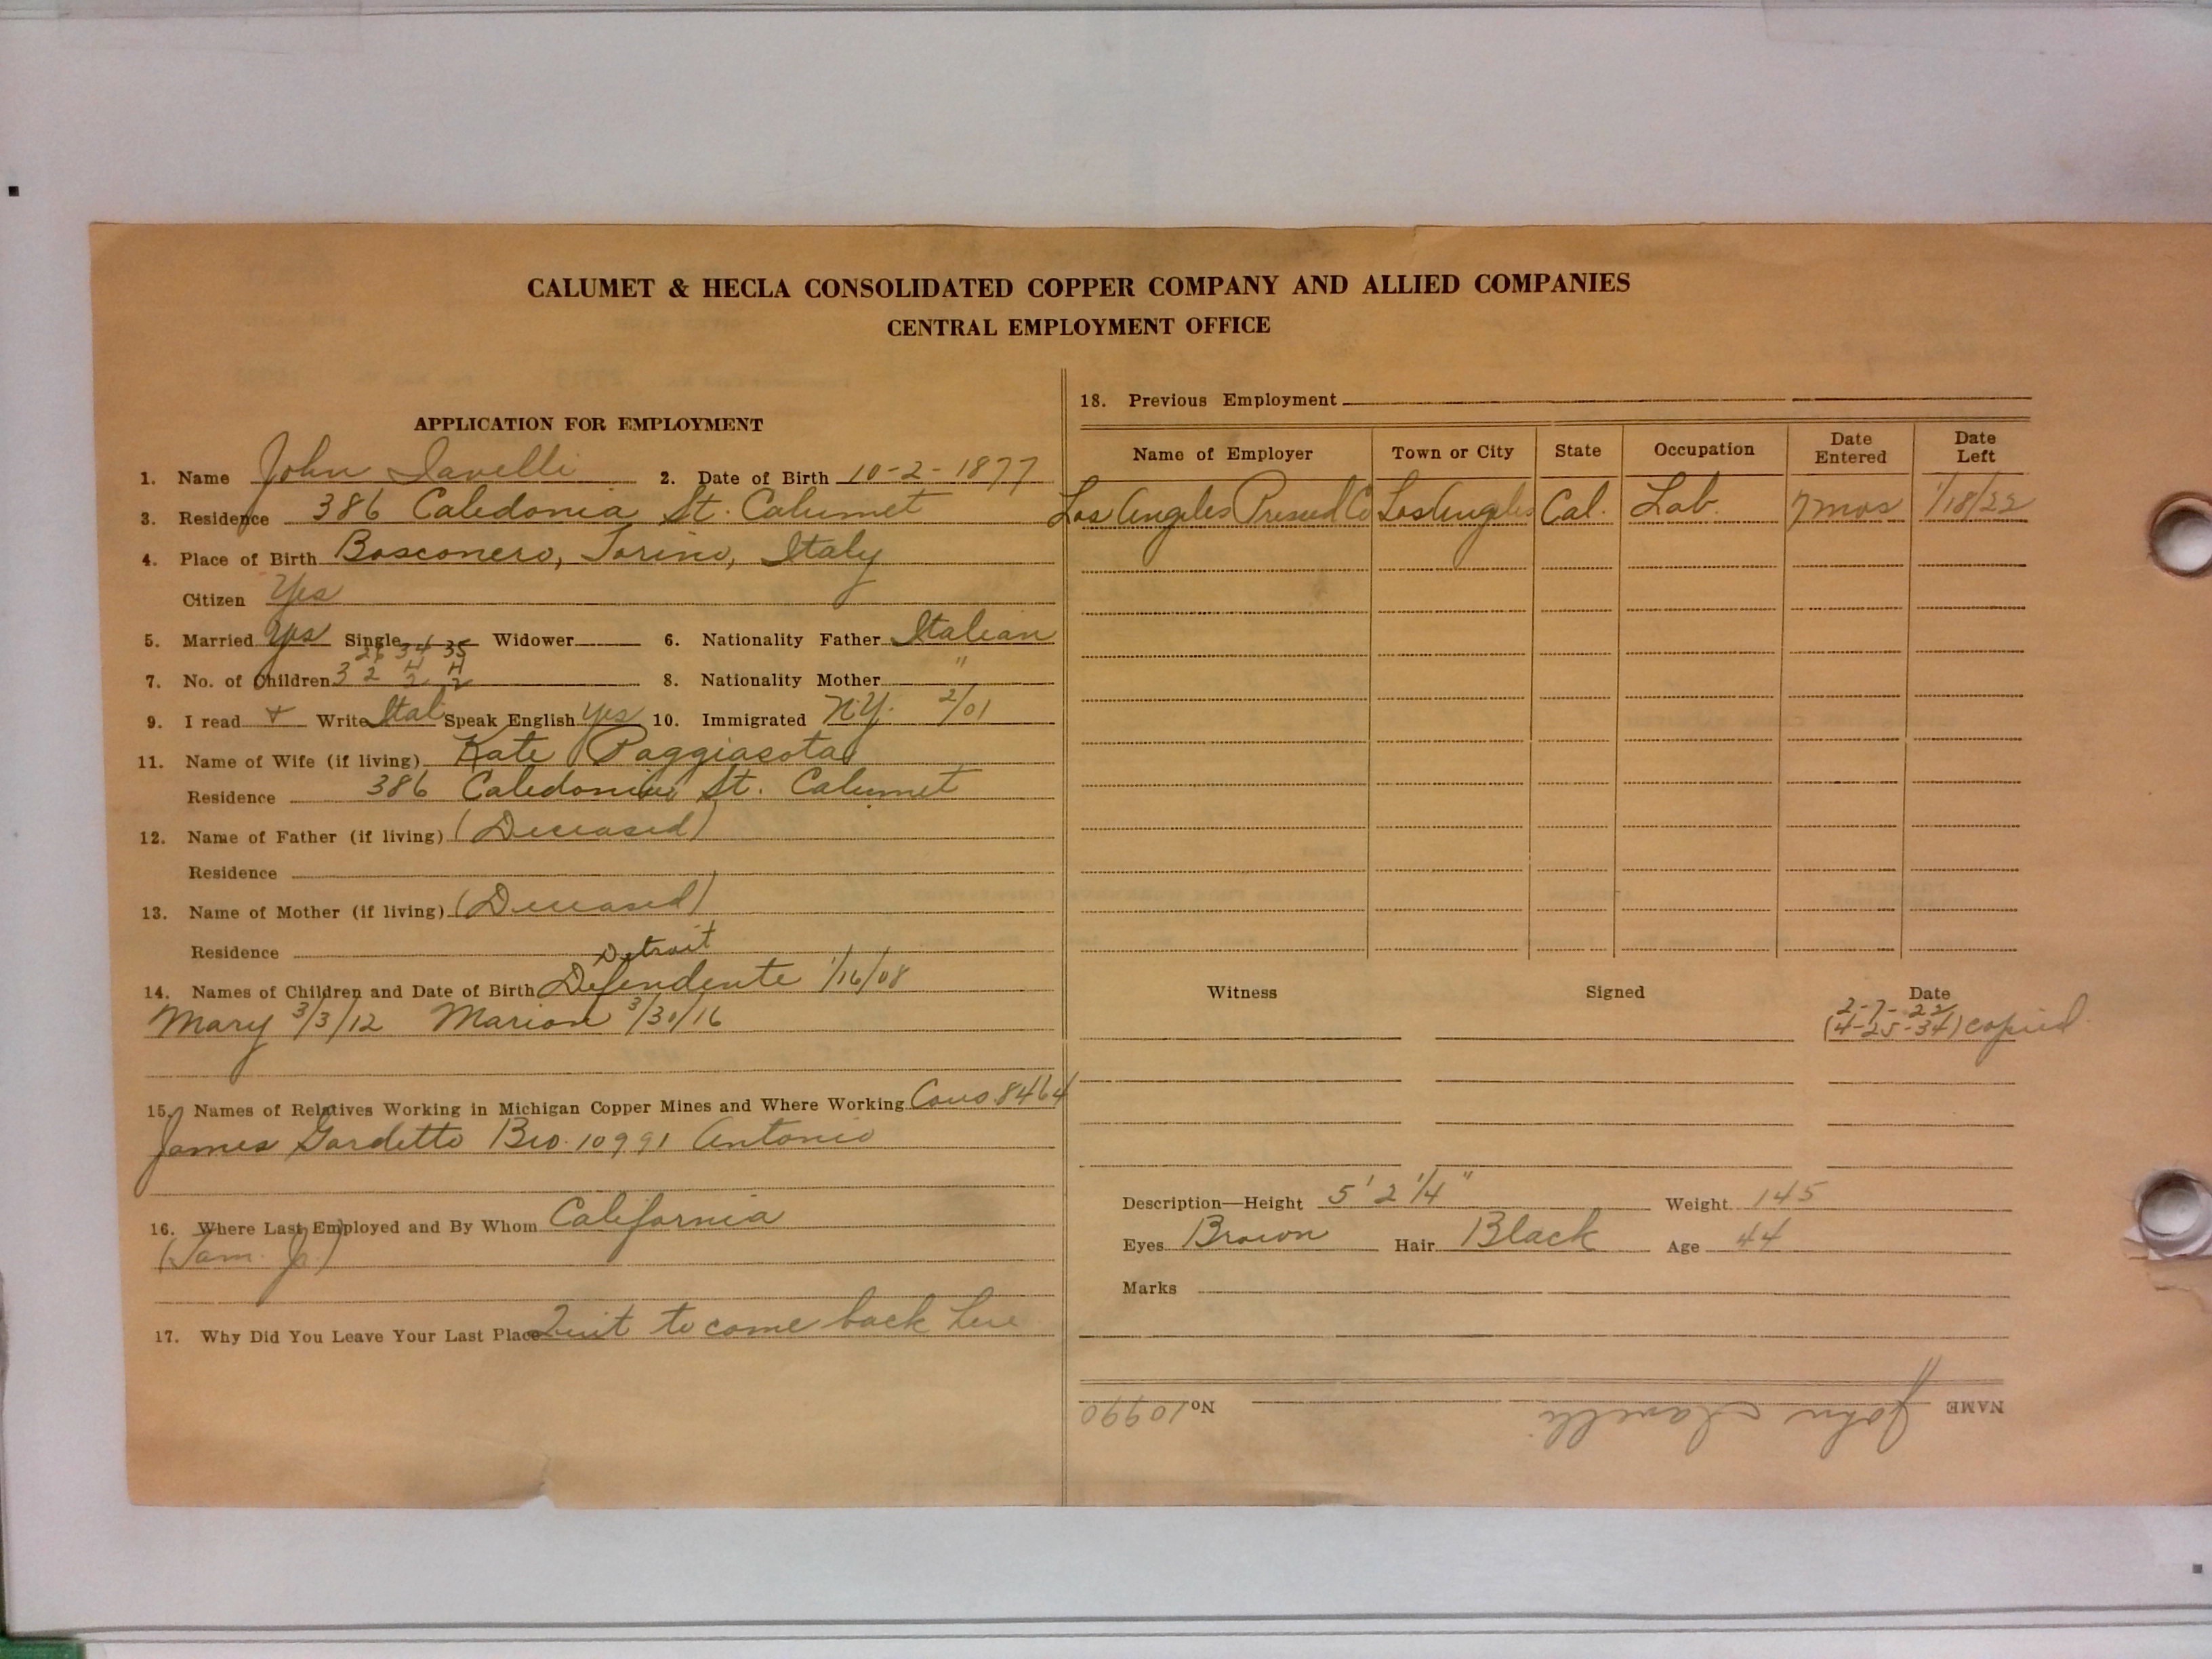 CALUMET & HECLA CONSOLIDATED COPPER COMPANY AND ALLIED COMPANIES
CENTRAL EMPLOYMENT OFFICE
APPLICATION FOR EMPLOYMENT
1. Name John Iavelli 2. Date of Birth 10-2-1877
3. Residence 386 Caledonia St. Calumet
4. Place of Birth Bosconero, Torino, Italy
Citizen Yes
5. Married Yes Single Widower 6. Nationality Father Italian
26 34 35
7. No. of Children 3 2 8. Nationality Mother "
9. I read + Write Ital Speak English Yes 10. Immigrated N.Y. 2/01
11. Name of Wife (if living) Kate
Residence 386 Caledonia St. Calumet
12. Name of Father (if living) (Deceased)
Residence
13. Name of Mother (if living) (Deceased)
Residence
Detroit
14. Names of Children and Date of Birth Defendente 1/16/08
Mary 3/3/12 Marion 3/30/16
15. Names of Relatives Working in Michigan Copper Mines and Where Working Cous. 8464
James Gardetto Bro. 10991 Antonio
16. Where Last Employed and By Whom California
(Tam. Jr.)
17. Why Did You Leave Your Last Place Quit to come back here
18. Previous Employment
Name of Employer Town or City State Occupation Date Entered Date Left
Los Angeles Pressed Co Los Angeles Cal. Lab. 7 mos 1/18/22
Witness Signed Date
2-7-22
(4-25-34) copied
Description—Height 5' 2 1/4" Weight 145
Eyes Brown Hair Black Age 44
Marks
NAME John Iavelli No 10990